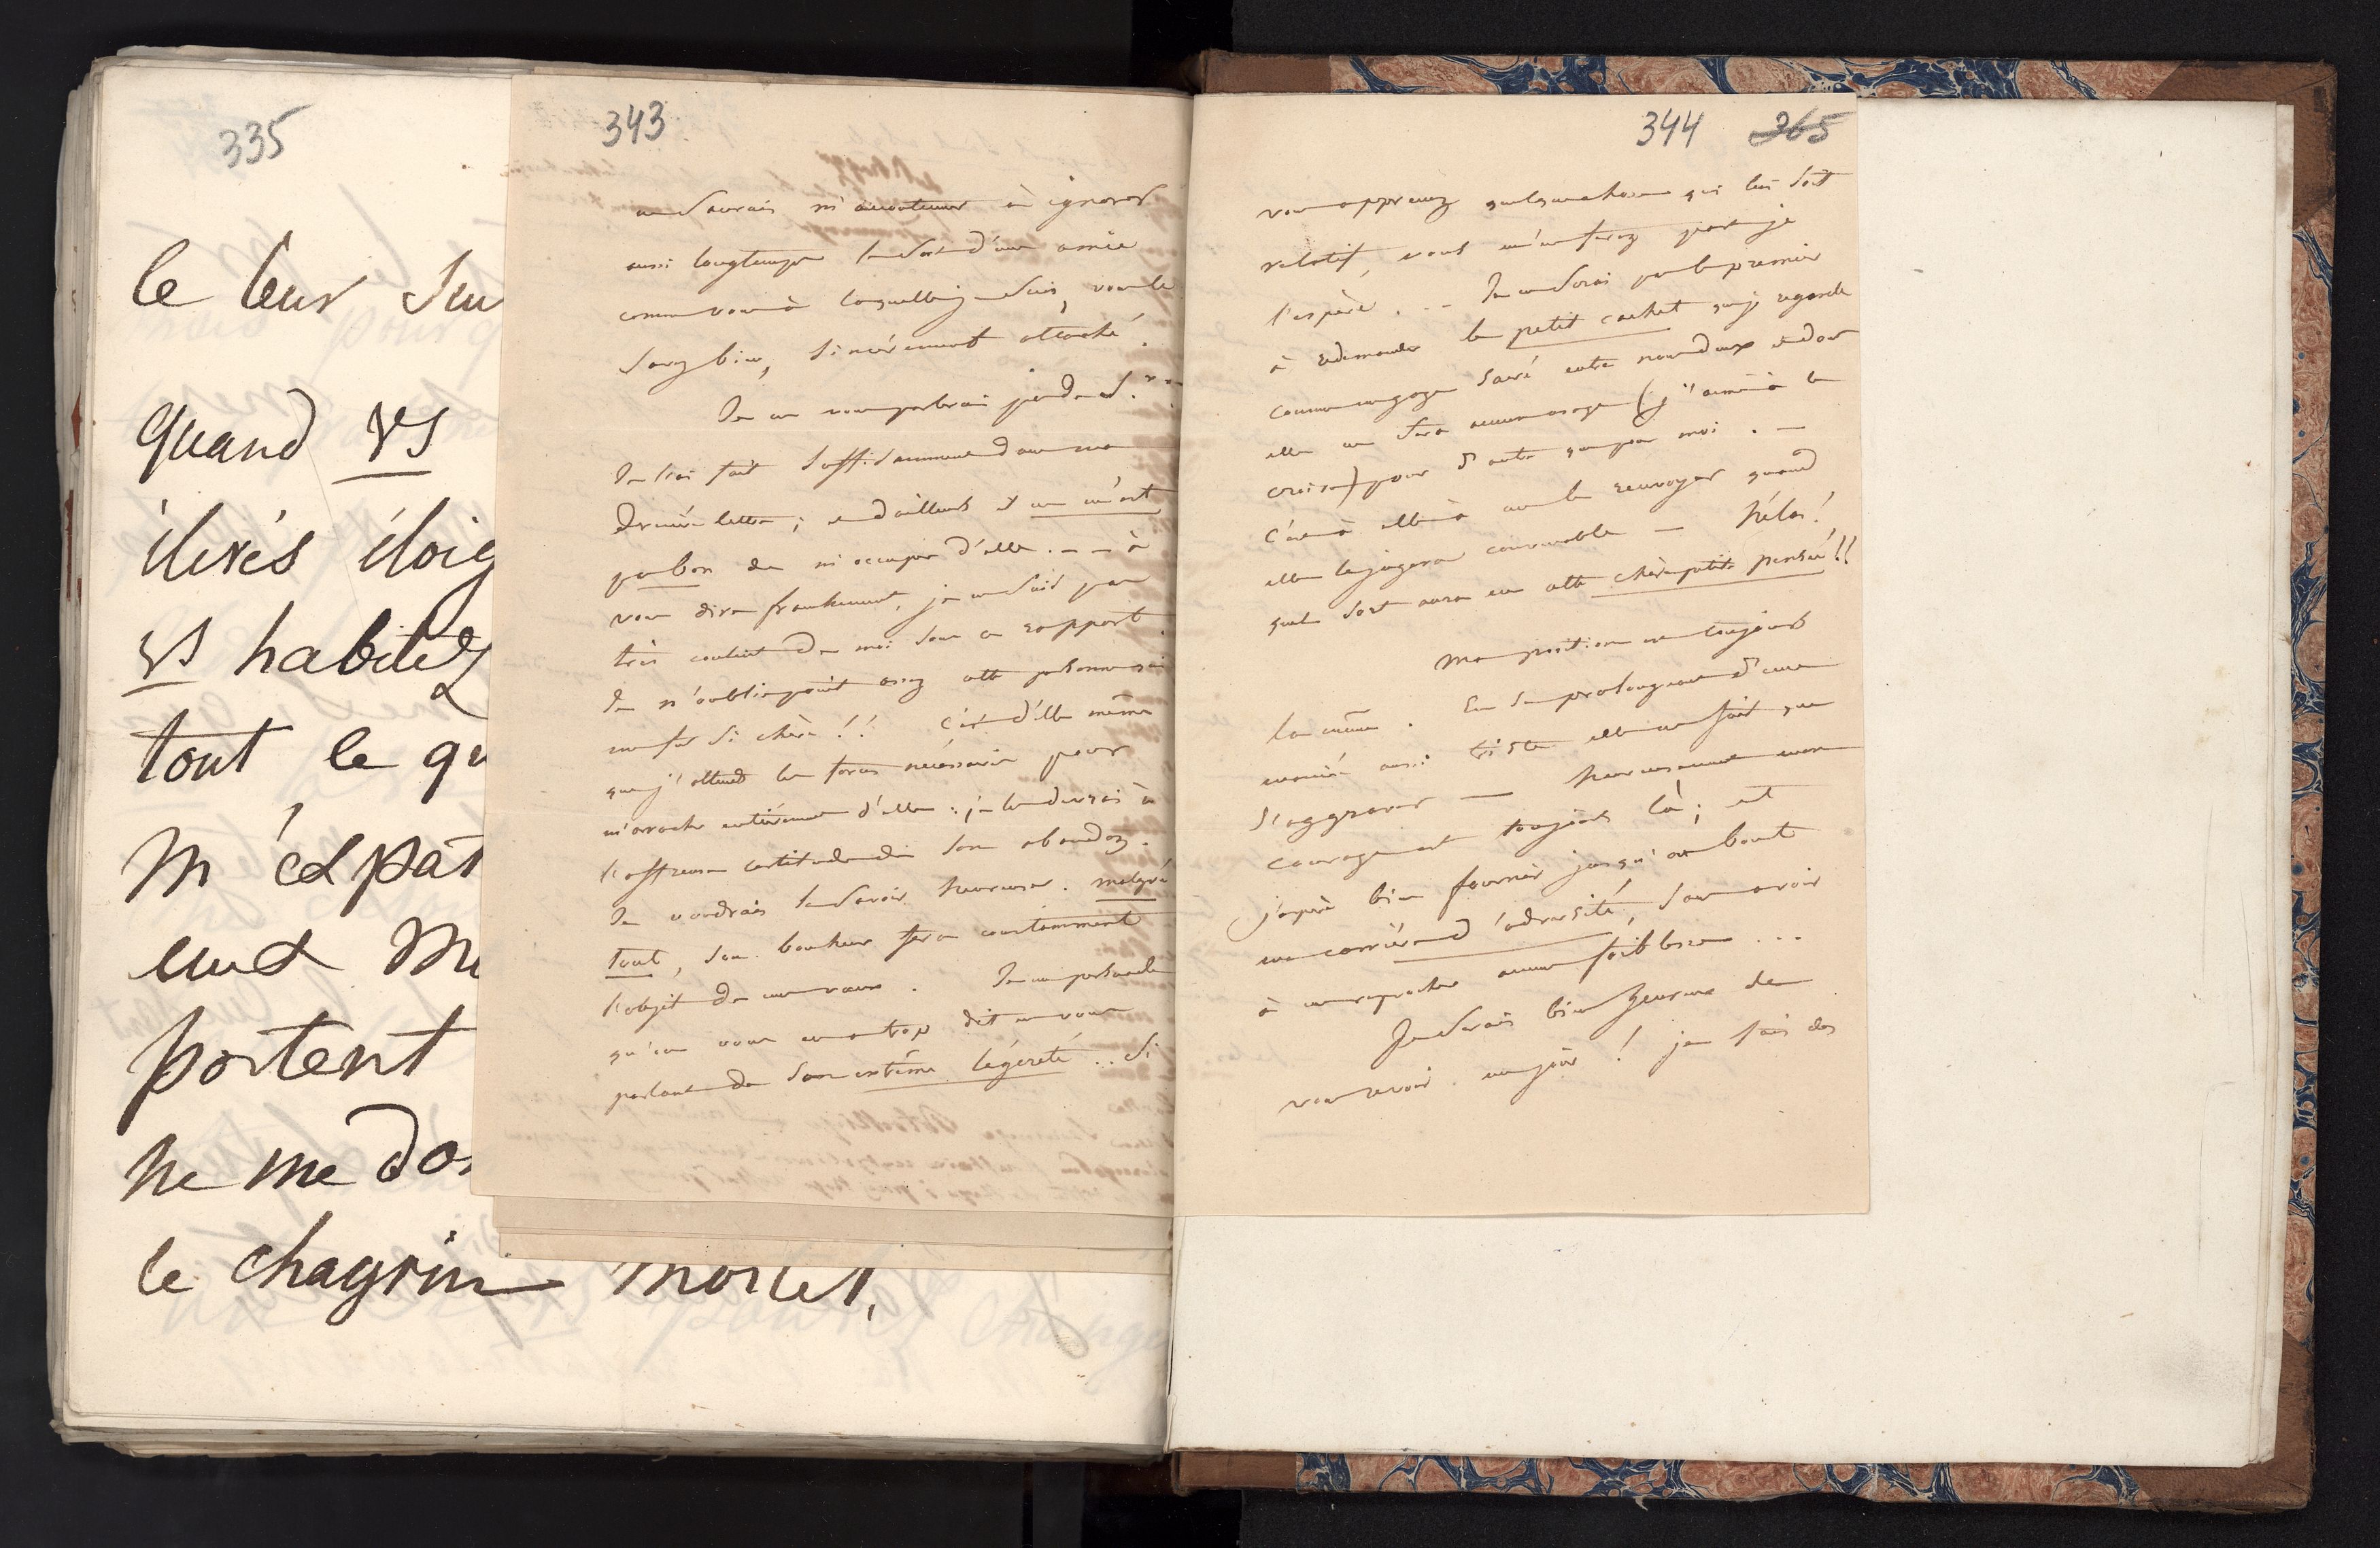 335
le leur
quand vs
vs habitez
tout le
portent
ne me
le chagrin mortel,
343
ne saurais m'accoutumer à ignorer
aussi longtemps le sort d'une amie
comme vous à laquelle je suis, vous le
savez bien, sincèrement attaché.
Je ne vous parlerai
Je l'ai fait suffisamment dans ma
dernière lettre ; et d'ailleurs il ne m'est
pas bon de m'occuper d'elle . — — à
vous dire franchement, je ne suis pas
très content de moi sous ce rapport.
Je n'oublie point assez cette personne qui
me fut si chère !! C'est d'elle même
que j'attends les forces nécessaires pour
m'arracher entièrement d'elle : je les devrai à
l'affreuse certitude de son abandon.
Je voudrais la savoir heureuse. malgré
tout, son bonheur fera constamment
l'objet de mes vœux . Je me persuade
qu'on vous en a trop dit en vous
parlant de son extrême légèreté .. Si
344 365
vous apprenez quelque chose qui lui soit
relatif, vous m'en ferez part je
l'espère . — Je ne serai pas le premier
à redemander le petit cachet que je regarde
comme un gage sacré entre nous deux et dont
elle ne fera aucun usage (j'aime à le
croire) pour d'autre que pour moi . —
C'est à elle à me le renvoyer quand
elle le jugera convenable — hélas !
quel sort aura eu cette chère petite pensée !!
Ma position est toujours
la même . En se prolongeant d'une
manière aussi triste elle ne fait que
s'aggraver — heureusement mon
courage est toujours là ; et
j'espère bien fournir jusqu'au bout
ma carrière d'adversité, sans avoir
à me reprocher aucune faiblesse ...
Je serais bien heureux de
vous revoir un jour ! j'en fais des